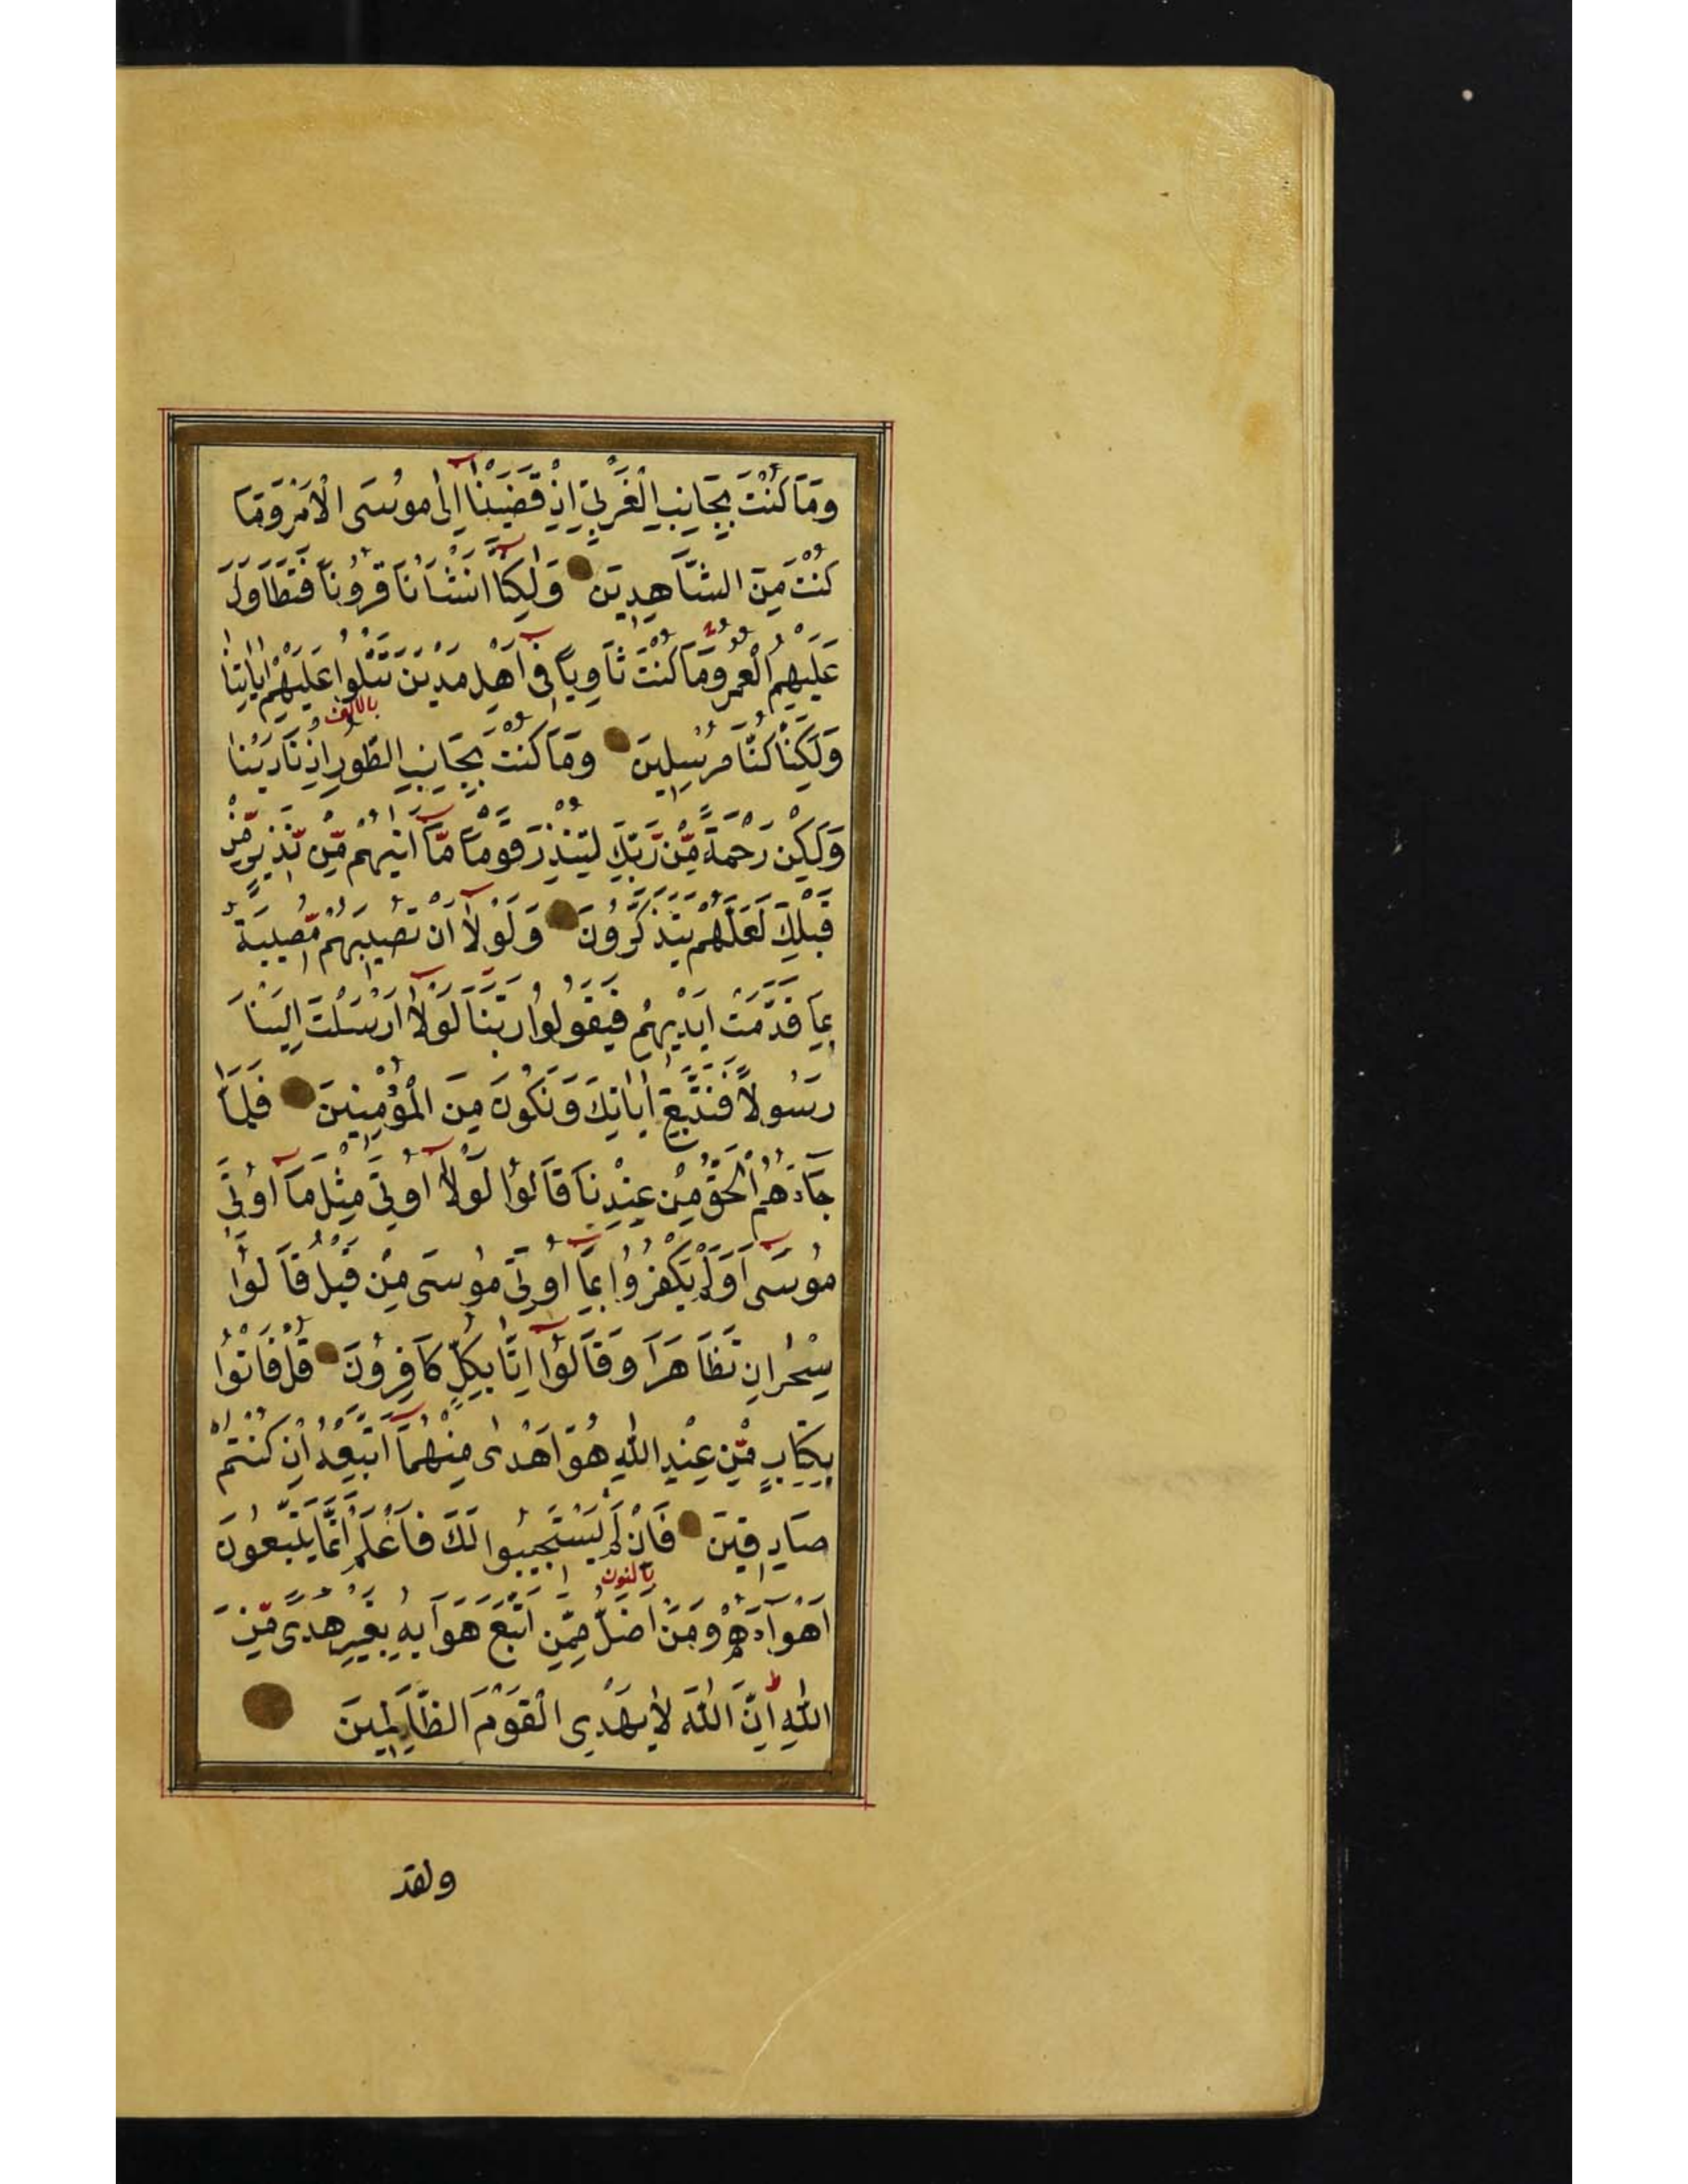 وَمَا كُنْتَ بِجَانِبِ الْغَرْبِيِّ اِذْ قَضَيْنَا اِلٰى مُوسَى الْاَمْرَ وَمَا
كُنْتَ مِنَ الشَّاهِدِينَ وَلٰكِنَّا اَنْشَاْنَا قُرُونًا فَتَطَاوَلَ
عَلَيْهِمُ الْعُمُرُ وَمَا كُنْتَ ثَاوِيًا فِى اَهْلِ مَدْيَنَ تَتْلُوا عَلَيْهِمْ اٰيَاتِنَا
بالالف
وَلٰكِنَّا كُنَّا مُرْسِلِينَ وَمَا كُنْتَ بِجَانِبِ الطُّورِ اِذْ نَادَيْنَا
وَلٰكِنْ رَحْمَةً مِّنْ رَّبِّكَ لِتُنْذِرَ قَوْمًا مَّا اَتٰيهُمْ مِّنْ نَّذِيرٍ مِّنْ
قَبْلِكَ لَعَلَّهُمْ يَتَذَكَّرُونَ وَلَوْلَا اَنْ تُصِيبَهُمْ مُّصِيبَةٌ
بِمَا قَدَّمَتْ اَيْدِيهِمْ فَيَقُولُوا رَبَّنَا لَوْلَا اَرْسَلْتَ اِلَيْنَا
رَسُولًا فَنَتَّبِعَ اٰيَاتِكَ وَنَكُونَ مِنَ الْمُؤْمِنِينَ فَلَمَّا
جَاءَهُمُ الْحَقُّ مِنْ عِنْدِنَا قَالُوا لَوْلَا اُوتِيَ مِثْلَ مَا اُوتِيَ
مُوسَى اَوَلَمْ يَكْفُرُوا بِمَا اُوتِيَ مُوسَى مِنْ قَبْلُ قَالُوا
سِحْرَانِ تَظَاهَرَا وَقَالُوا اِنَّا بِكُلٍّ كَافِرُونَ قُلْ فَاْتُوا
بِكِتَابٍ مِّنْ عِنْدِ اللّٰهِ هُوَ اَهْدٰى مِنْهُمَا اَتَّبِعْهُ اِنْ كُنْتُمْ
صَادِقِينَ فَاِنْ لَمْ يَسْتَجِيبُوا لَكَ فَاعْلَمْ اَنَّمَا يَتَّبِعُونَ
بالنون
اَهْوَاءَهُمْ وَمَنْ اَضَلُّ مِمَّنِ اتَّبَعَ هَوَايهُ بِغَيْرِ هُدًى مِّنَ
اللّٰهِ اِنَّ اللّٰهَ لَا يَهْدِى الْقَوْمَ الظَّالِمِينَ
ولقد